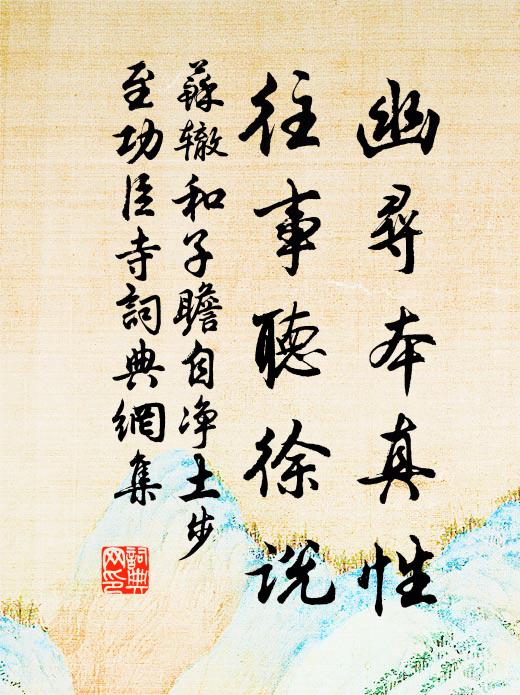 幽尋本真性
往事聽徐説
蘇辙和子瞻自净土步
至功臣寺詞典網集
詞典
网印